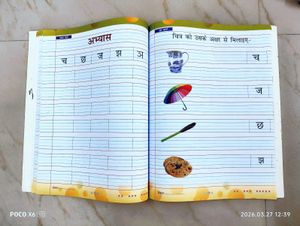 अभ्यास
च छ ज झ ञ
चित्र को उसके अक्षर से मिलाइए-
च
ज
छ
झ
POCO X6
2026.03.27 12:39